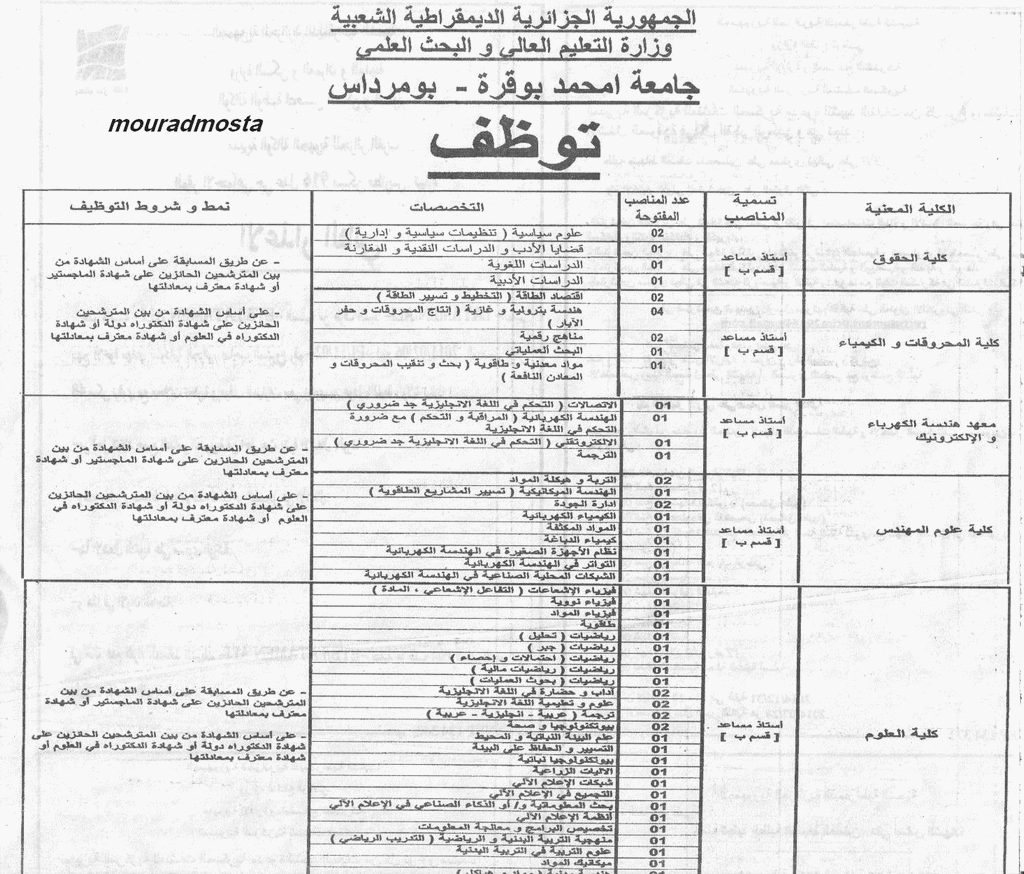 الجمهورية الجزائرية الديمقراطية الشعبية
وزارة التعليم العالي و البحث العلمي
جامعة امحمد بوقرة - بومرداس
mouradmosta
توظف
الكلية المعنية
تسمية المناصب
عدد المناصب المفتوحة
التخصصات
نمط و شروط التوظيف
كلية الحقوق
أستاذ مساعد
[ قسم ب ]
02 علوم سياسية ( تنظيمات سياسية و إدارية )
01 قضايا الأدب و الدراسات النقدية و المقارنة
01 الدراسات اللغوية
01 الدراسات الأدبية
- عن طريق المسابقة على أساس الشهادة من
بين المترشحين الحائزين على شهادة الماجستير
أو شهادة معترف بمعادلتها
كلية المحروقات و الكيمياء
أستاذ مساعد
[ قسم ب ]
02 اقتصاد الطاقة ( التخطيط و تسيير الطاقة )
04 هندسة بترولية و غازية ( إنتاج المحروقات و حفر
الآبار )
02 مناهج رقمية
01 البحث العملياتي
01 مواد معدنية و طاقوية ( بحث و تنقيب المحروقات و
المعادن النافعة )
- على أساس الشهادة من بين المترشحين
الحائزين على شهادة الدكتوراه دولة أو شهادة
الدكتوراه في العلوم أو شهادة معترف بمعادلتها
معهد هندسة الكهرباء
و الإلكترونيك
أستاذ مساعد
[ قسم ب ]
01 الاتصالات ( التحكم في اللغة الانجليزية جد ضروري )
01 الهندسة الكهربائية ( المراقبة و التحكم ) مع ضرورة
التحكم في اللغة الانجليزية
01 الالكتروتقني ( التحكم في اللغة الانجليزية جد ضروري )
01 الترجمة
- عن طريق المسابقة على أساس الشهادة من بين
المترشحين الحائزين على شهادة الماجستير أو شهادة
معترف بمعادلتها
كلية علوم المهندس
أستاذ مساعد
[ قسم ب ]
02 التربة و هيكلة المواد
01 الهندسة الميكانيكية ( تسيير المشاريع الطاقوية )
02 ادارة الجودة
01 الكيمياء الكهربائية
01 المواد المكثفة
01 كيمياء الدباغة
01 نظام الأجهزة الصغيرة في الهندسة الكهربائية
01 التواتر في الهندسة الكهربائية
01 الشبكات المحلية الصناعية في الهندسة الكهربائية
- على أساس الشهادة من بين المترشحين الحائزين
على شهادة الدكتوراه دولة أو شهادة الدكتوراه في
العلوم أو شهادة معترف بمعادلتها
كلية العلوم
أستاذ مساعد
[ قسم ب ]
01 فيزياء الإشعاعات ( التفاعل الإشعاعي ، المادة )
01 فيزياء نووية
01 فيزياء المواد
01 طاقوية
01 رياضيات ( تحليل )
01 رياضيات ( جبر )
01 رياضيات ( احتمالات و إحصاء )
01 رياضيات ( رياضيات مالية )
01 رياضيات ( بحوث العمليات )
02 آداب و حضارة في اللغة الانجليزية
02 علوم و تعليمية اللغة الانجليزية
02 ترجمة ( عربية - انجليزية - عربية )
02 بيوتكنولوجيا و صحة
01 علم البيئة النباتية و المحيط
01 التسيير و الحفاظ على البيئة
01 بيوتكنولوجيا نباتية
01 الآليات الزراعية
01 شبكات الإعلام الآلي
01 التجميع في الإعلام الآلي
01 بحث المعلوماتية و/ أو الذكاء الصناعي في الإعلام الآلي
01 أنظمة الإعلام الآلي
01 تخصيص البرامج و معالجة المعلومات
01 منهجية التربية البدنية و الرياضية ( التدريب الرياضي )
01 علوم التربية في التربية البدنية
01 ميكانيك المواد
- عن طريق المسابقة على أساس الشهادة من بين
المترشحين الحائزين على شهادة الماجستير أو شهادة
معترف بمعادلتها
- على أساس الشهادة من بين المترشحين الحائزين على
شهادة الدكتوراه دولة أو شهادة الدكتوراه في العلوم أو
شهادة معترف بمعادلتها